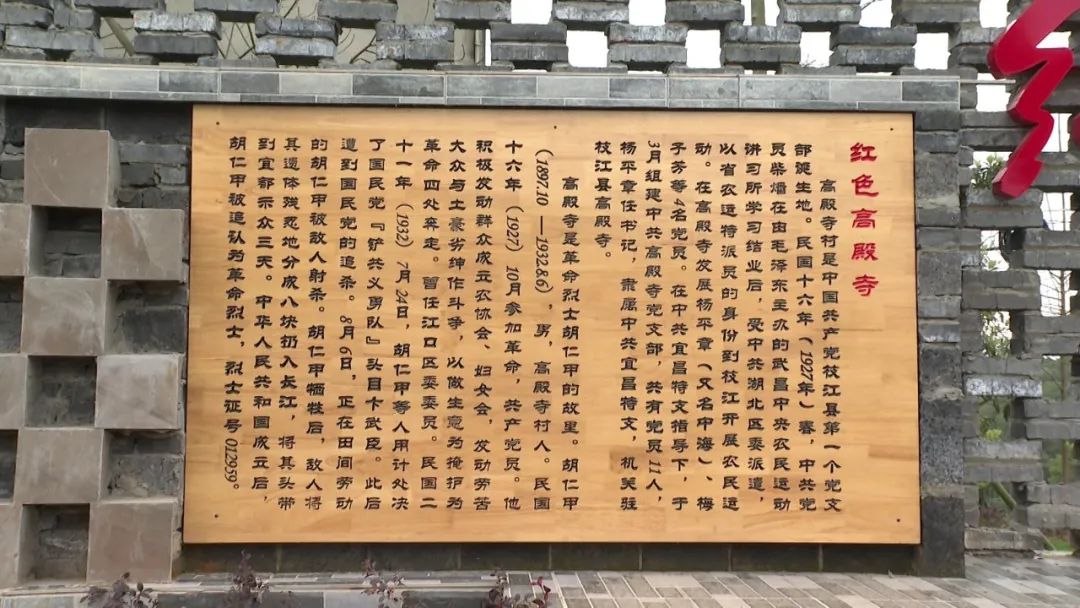 红色高殿寺
高殿寺村是中国共产党枝江县第一个党支
部诞生地。民国十六年（1927年）春，中共党
员柴燔在由毛泽东主办的武昌中央农民运动
讲习所学习结业后，受中共湖北区委派遣，
以省农运特派员的身份到枝江开展农民运
动。在高殿寺发展杨平章（又名中海）、梅
子芳等4名党员。在中共宜昌特支指导下，于
3月组建中共高殿寺党支部，共有党员11人，
杨平章任书记，隶属中共宜昌特支，机关驻
枝江县高殿寺。
高殿寺是革命烈士胡仁甲的故里。胡仁甲
（1897.10—1932.8.6），男，高殿寺村人。民国
十六年（1927）10月参加革命，共产党员。他
积极发动群众成立农协会、妇女会，发动劳苦
大众与土豪劣绅作斗争，以做生意为掩护为
革命四处奔走。曾任江口区委委员。民国二
十一年（1932）7月24日，胡仁甲等人用计处决
了国民党『铲共义勇队』头目卡武臣。此后
遭到国民党的追杀。8月6日，正在田间劳动
的胡仁甲被敌人射杀。胡仁甲牺牲后，敌人将
其遗体残忍地分成八块扔入长江，将其头带
到宜都示众三天。中华人民共和国成立后，
胡仁甲被追认为革命烈士，烈士证号012959。